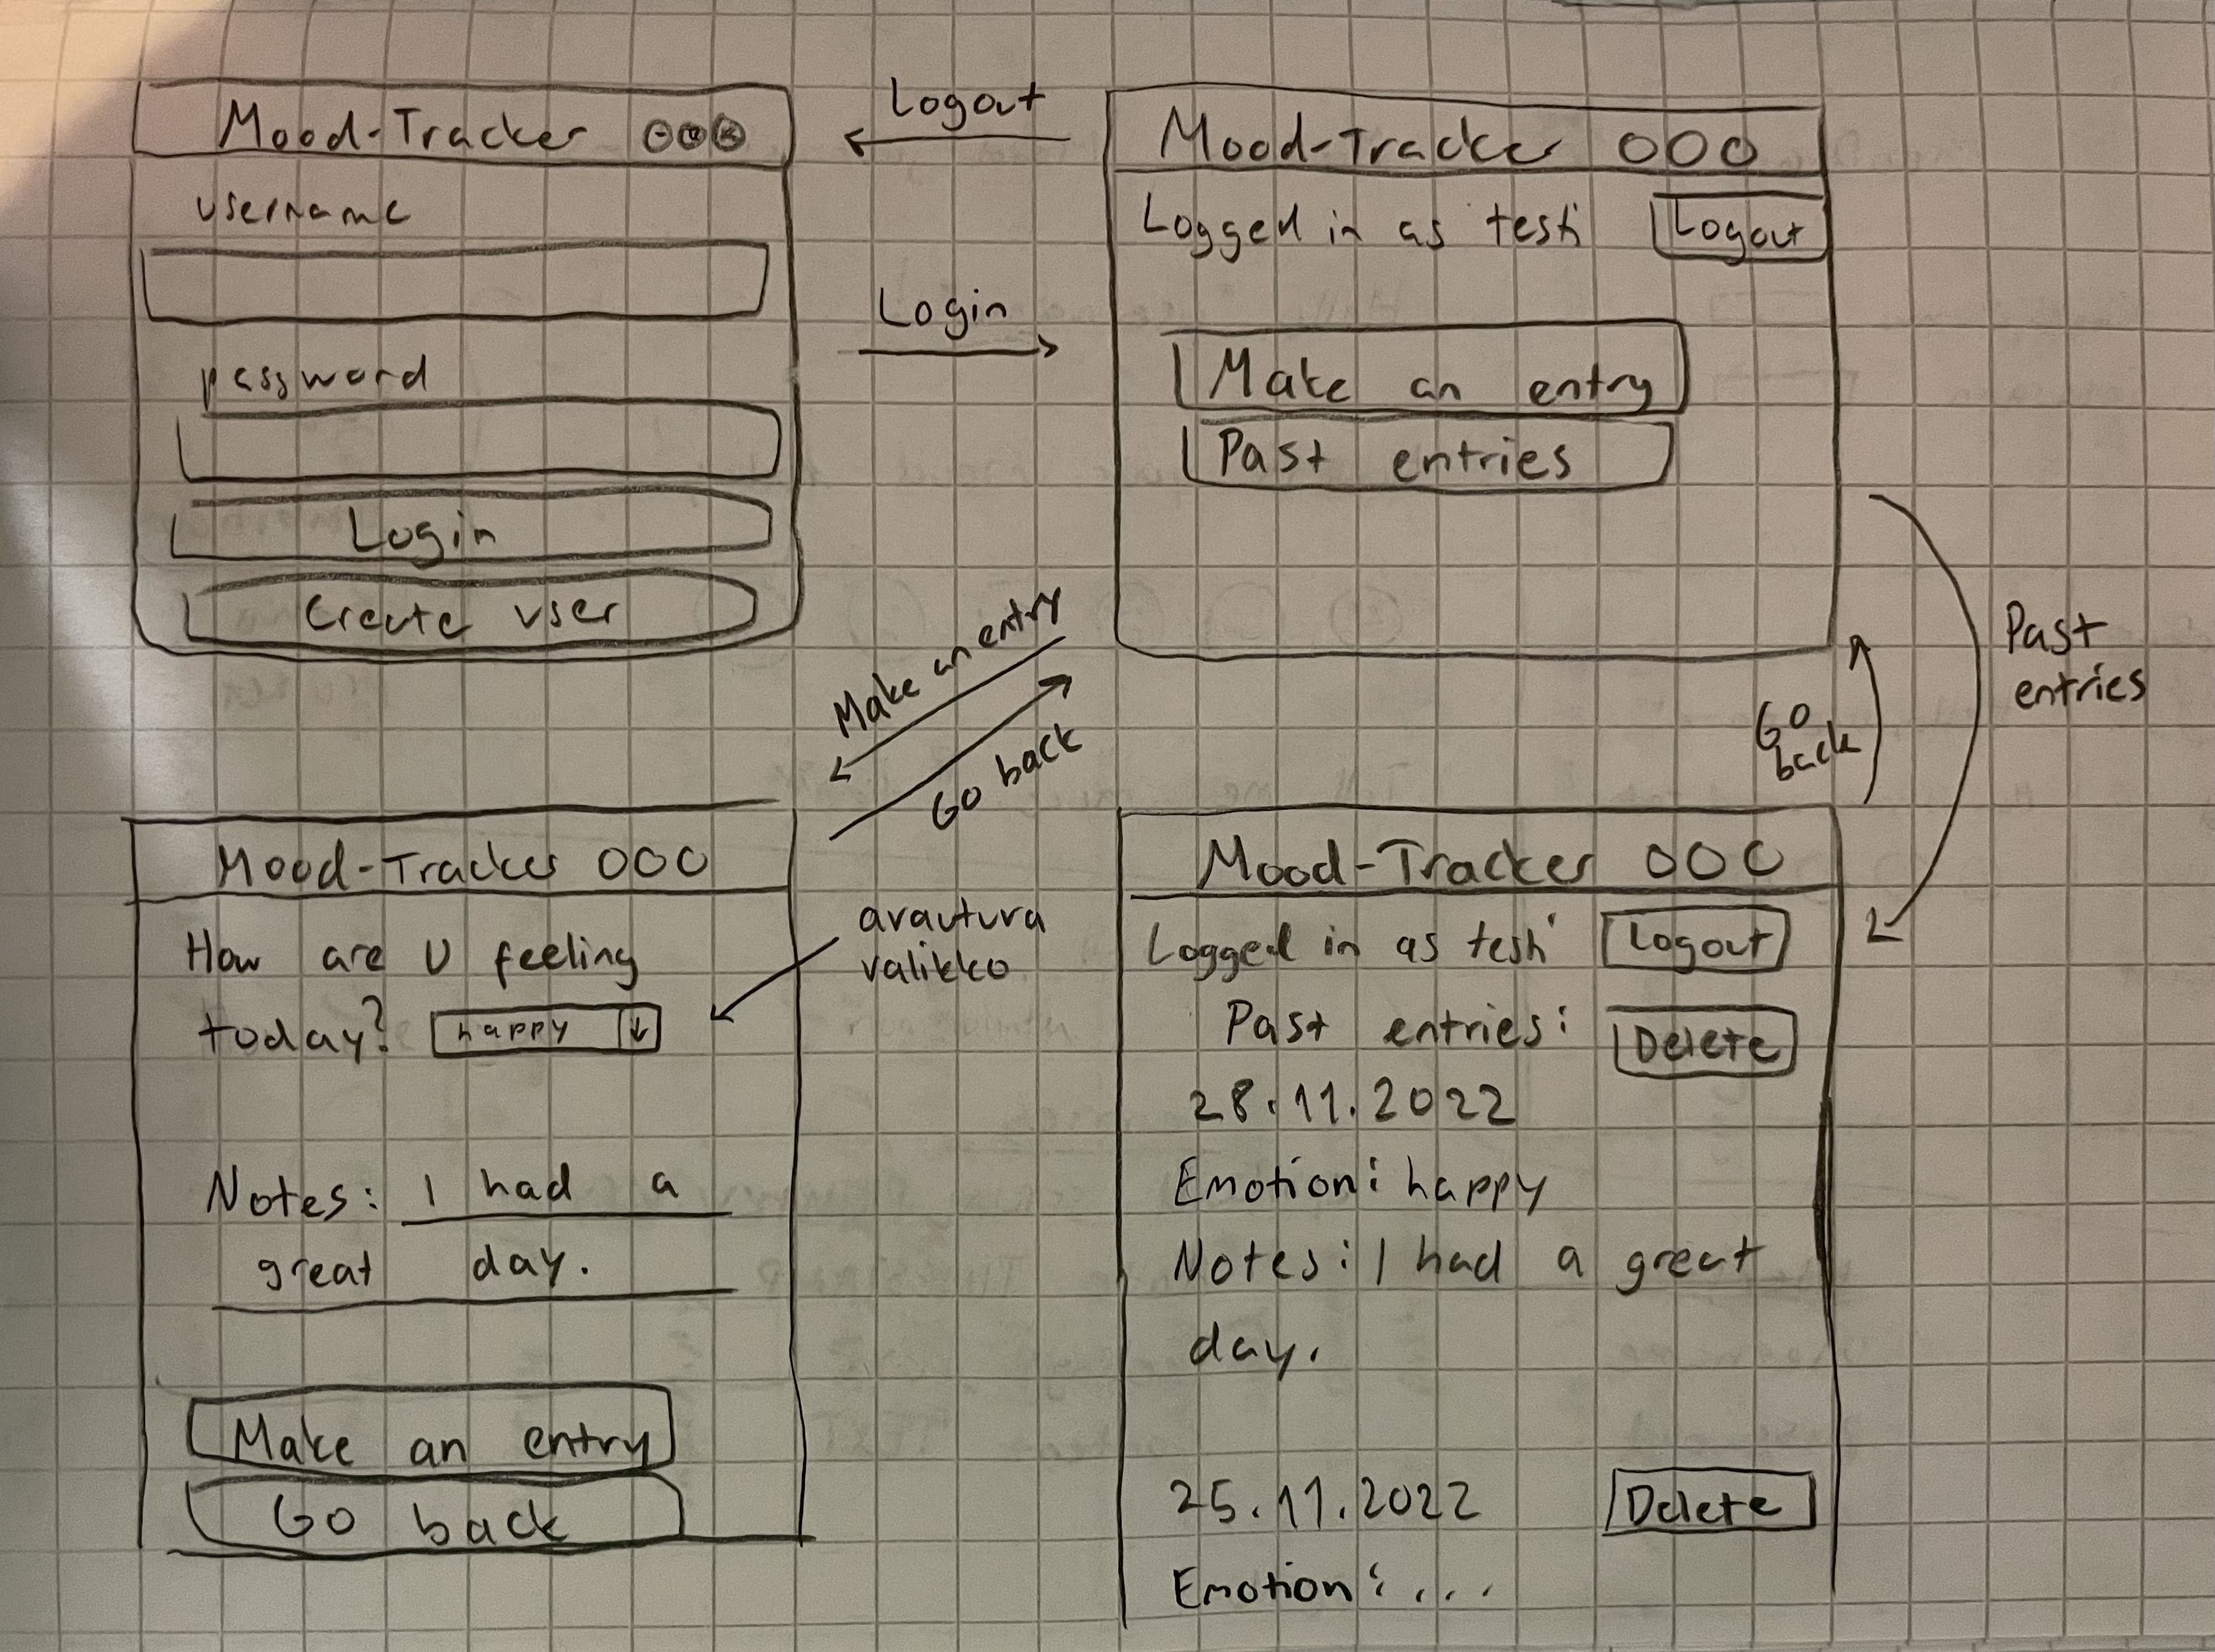 Mood-Tracker
username
password
Login
Create user
Logout
Login
Mood-Tracker
Logged in as 'test'
Logout
Make an entry
Past entries
Make an entry
Go back
Past
entries
Go
back
Mood-Tracker
How are U feeling
today? happy
Notes: I had a
great day.
Make an entry
Go back
avautuva
valikko
Mood-Tracker
Logged in as 'test'
Logout
Past entries:
Delete
28.11.2022
Emotion: happy
Notes: I had a great
day.
25.11.2022
Delete
Emotion: ...